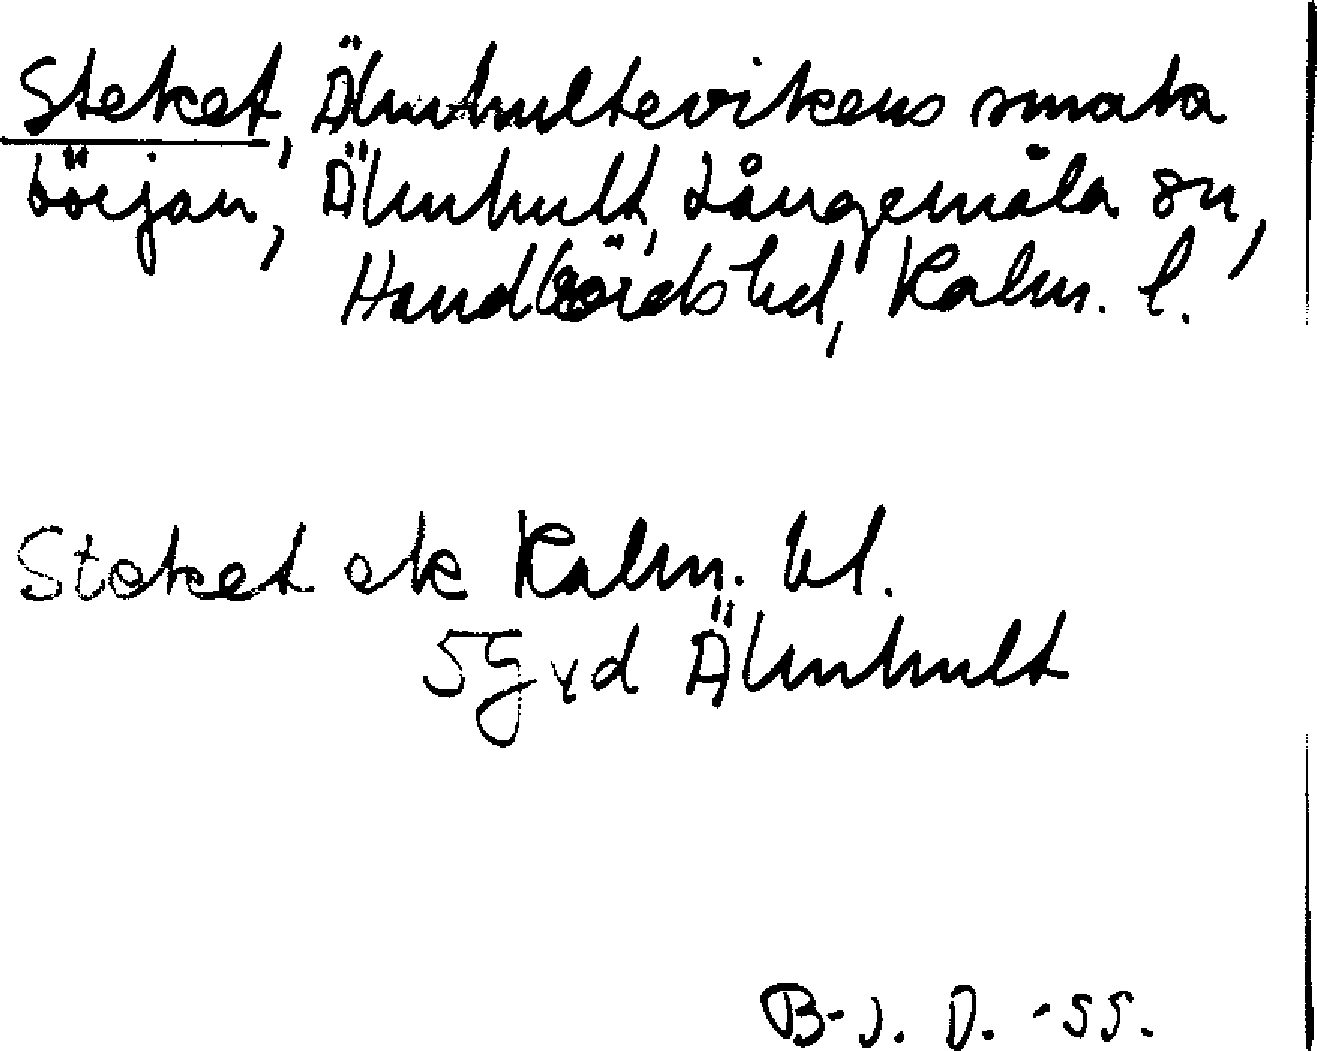 Steket, Älmhultevikens smala
början, Älmhult, Långemåla sn,
Handbörds hd, Kalm. l.
Steket ek Kalm. bl.
5G vd Älmhult
B-J. D. -55.